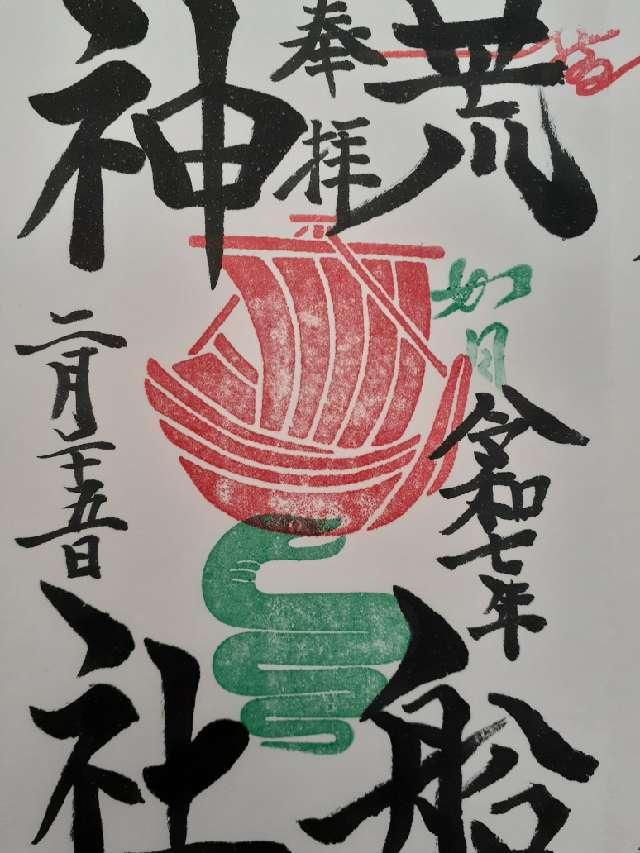 奉拝
荒船
神社
如月
令和七年
二月二十五日